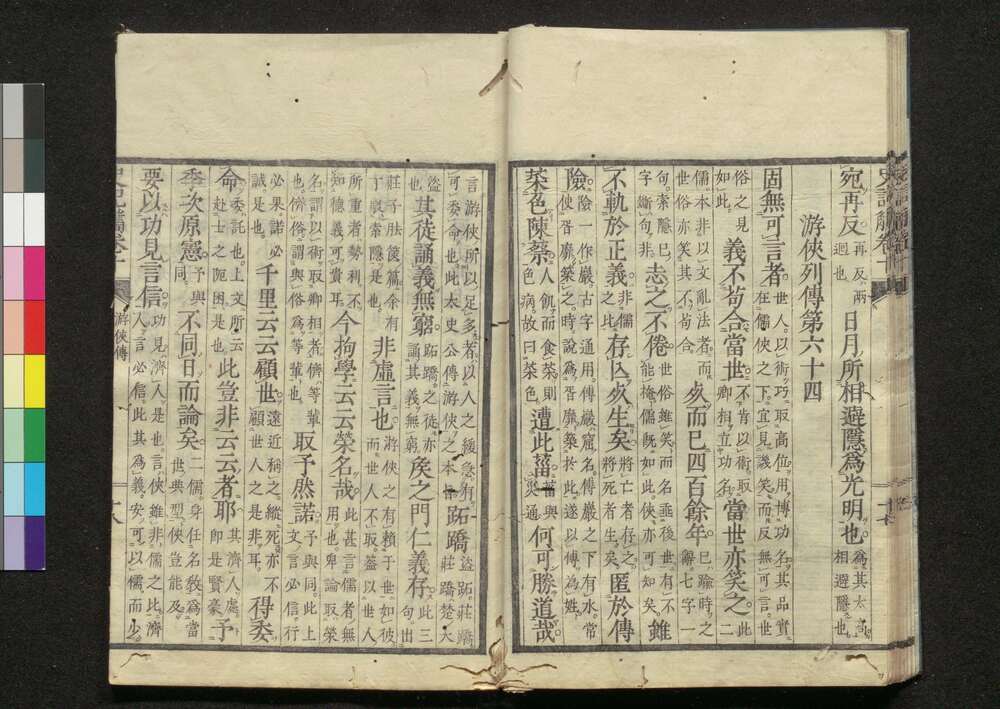 宛冉反再反兩迴也日月所相避隱為光明也為其太高相避隱也
游俠列傳第六十四
固無可言者世人以術巧取高位用博功名其品實在儒俠之下宜見譏笑而反無可言世
俗之見如此義不苟合當世不肯以術取卿相立功名當世亦笑之此二
儒本非以文亂法者而世俗亦笑其不苟合死而已四百餘年已踰時之辭七字一
句索隱已字斷句非志之不倦世俗雖笑而名垂後世有不能掩儒既如此俠亦可知矣雖
不軌於正義非儒之比存亾死生矣將亡者存之將死者生矣匿於傳
險險一作巖古字通用傅巖窟名傅巖之下有水常使胥靡築之時說為胥靡築於此遂以傅為姓
菜色陳蔡人飢而食菜則色病故曰菜色遭此菑菑與災通何可勝道哉
言游俠所以足多者以人之緩急有可委命也此太史公傳游俠之本旨跖蹻盜跖莊蹻莊蹻楚大
盜也其徒誦義無窮跖蹻之徒亦誦其義無窮矦之門仁義存此三句出
莊子胠篋篇余有丁索隱是也非虛言也游俠之有賴于世如彼而世人不取蓋以世人
所重者勢利不知德義可貴耳今拘學云云榮名哉此甚言儒者無用也卑論取榮
名謂以術取卿相者儕等輩也儕俗謂與俗為等輩也取予然諾予與同此上文言必信行
必果諾必誠是也千里云云顧世遠近稱之縱死亦不顧世人之是非耳得委
命委託也上文所云赴士之阨困是也此豈非云云者耶其濟人處即是賢豪予
季次原憲予與同不同日而論矣二儒身任名敎為當世典型俠豈能及
要以功見言信功見濟人是也言俠雖非儒之比濟人言必信此其為義安可以儒而少
游俠傳